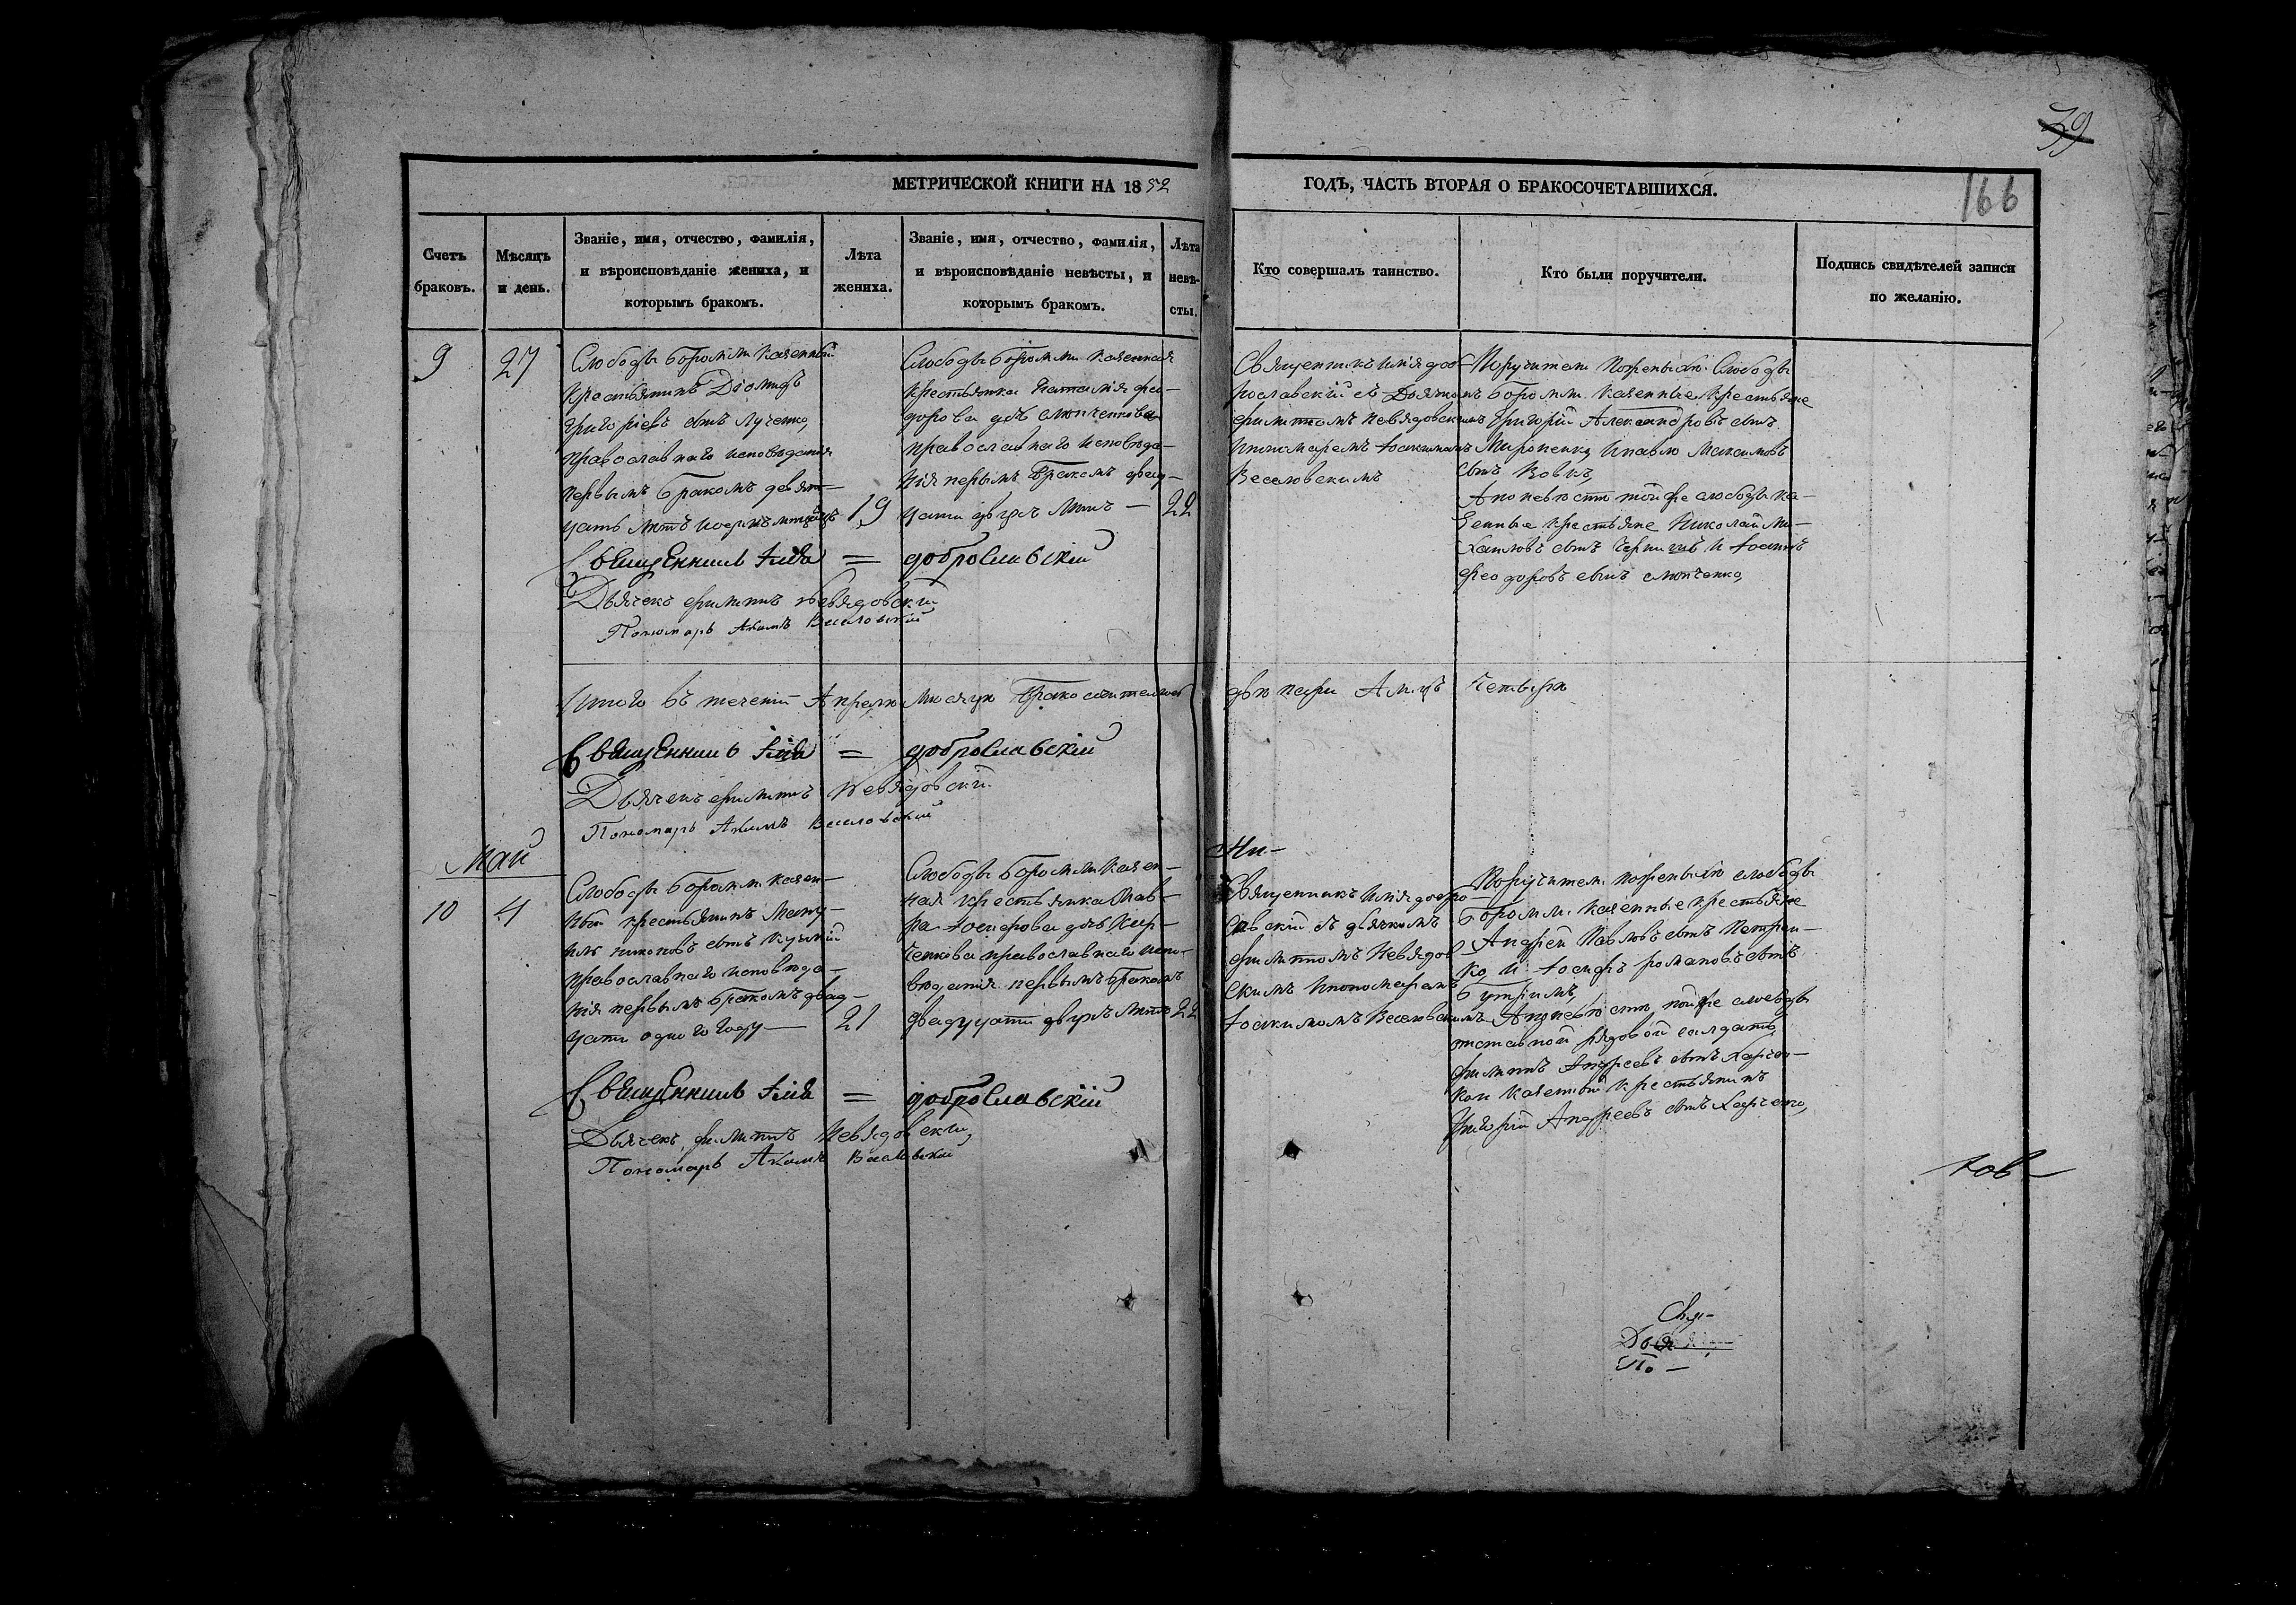 39
МЕТРИЧЕСКОЙ КНИГИ НА 1852
ГОДЪ, ЧАСТЬ ВТОРАЯ О БРАКОСОЧЕТАВШИХСЯ.
166
Счетъ
браковъ.
Мѣсяцъ
и день.
Званіе, имя, отчество, фамилія,
и вѣроисповѣданіе жениха, и
которымъ бракомъ.
Лѣта
жениха.
Званіе, имя, отчество, фамилія,
и вѣроисповѣданіе невѣсты, и
которымъ бракомъ.
Лѣта
невѣ-
сты.
Кто совершалъ таинство.
Кто были поручители.
Подпись свидѣтелей записи
по желанію.
9
27
Слободы Боромли казенный
крестьянинъ Діомидъ
Григоріевъ сынъ Луценко,
православнаго исповѣданія
первымъ бракомъ девят-
цать лѣтъ
19
Слободы Боромли казенная
крестьянка Наталія Фео-
дорова дчь
православнаго исповѣда-
нія первымъ бракомъ двад-
цати двухъ лѣтъ —
22
Священникъ Илія Доб-
рославскій съ Дьячкомъ
Филиппомъ Невядовскимъ
и пономаремъ Іоакимомъ
Веселовскимъ
Поручители по женихѣ: Слободы
Боромли казенные крестьяне
Григорій Александровъ сынъ
Мироненко, и Павло Максимовъ
сынъ Вовкъ,
А по невѣсте той же слободы ка-
зенные крестьяне Николай Ми-
хайловъ сынъ и Іоаннъ
Феодоровъ сынъ
Священникъ Илія = Доброславскій
Дьячекъ Филиппъ Невядовскій
Пономарь Акимъ Веселовскій
Итого въ теченіи Апрѣля мѣсяца бракосочетались
двѣ пары А лицъ четыре
Священникъ Илія = Доброславскій
Дьячекъ Филиппъ Невядовскій
Пономарь Акимъ Веселовскій
Май
10
4
Слободы Боромли казен-
ный крестьянинъ Ману-
илъ сынъ Куцкій
православнаго исповѣда-
нія первымъ бракомъ двад-
цати одного году —
21
Слободы Боромли казен-
ная крестьянка Мав-
ра Іосифова дчь Хар-
ченкова православнаго испо-
вѣданія первымъ бракомъ
двадцати двухъ лѣтъ
22
Священникъ Илія Добро-
славскій съ дьячкомъ
Филиппомъ Невядов-
скимъ и пономаремъ
Іоакимомъ Веселовскимъ
Поручители по женихѣ слободы
Боромли казенные крестьяне
Андрей Павловъ сынъ Петрен-
ко и Іосифъ Романовъ сынъ
Бутримъ,
А по невѣсте той же слободы
отставной рядовой солдатъ
Филиппъ Андреевъ сынъ Харчен-
ко и казенный крестьянинъ
Григорій Андреевъ сынъ Харченко,
Священникъ Илія = Доброславскій
Дьячекъ Филиппъ Невядовскій,
Пономарь Акимъ Веселовскій
ковъ